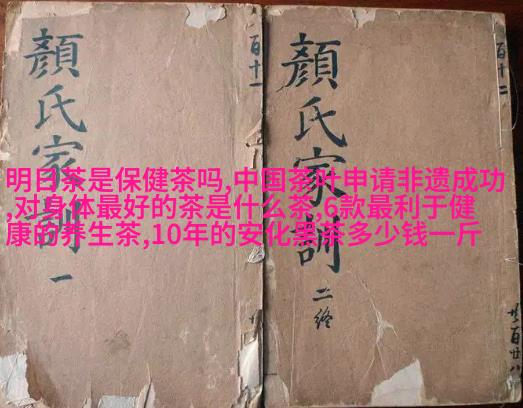 顏氏家訓 一
百十一
顏氏家訓 二終
百十二
明日茶是保健茶吗,中国茶叶申请非遗成功
,对身体最好的茶是什么茶,6款最利于健
康的养生茶,10年的安化黑茶多少钱一斤